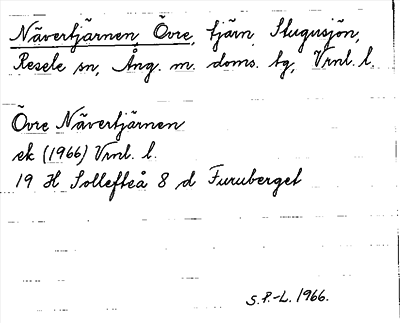 Nävertjärnen, Övre, tjärn, Stugusjön,
Resele sn, Ång. m. doms. tg, Vrnl. l.
Övre Nävertjärnen
ek (1966) Vrnl. l.
19 H Sollefteå 8 d Furuberget
S.P.-L. 1966.